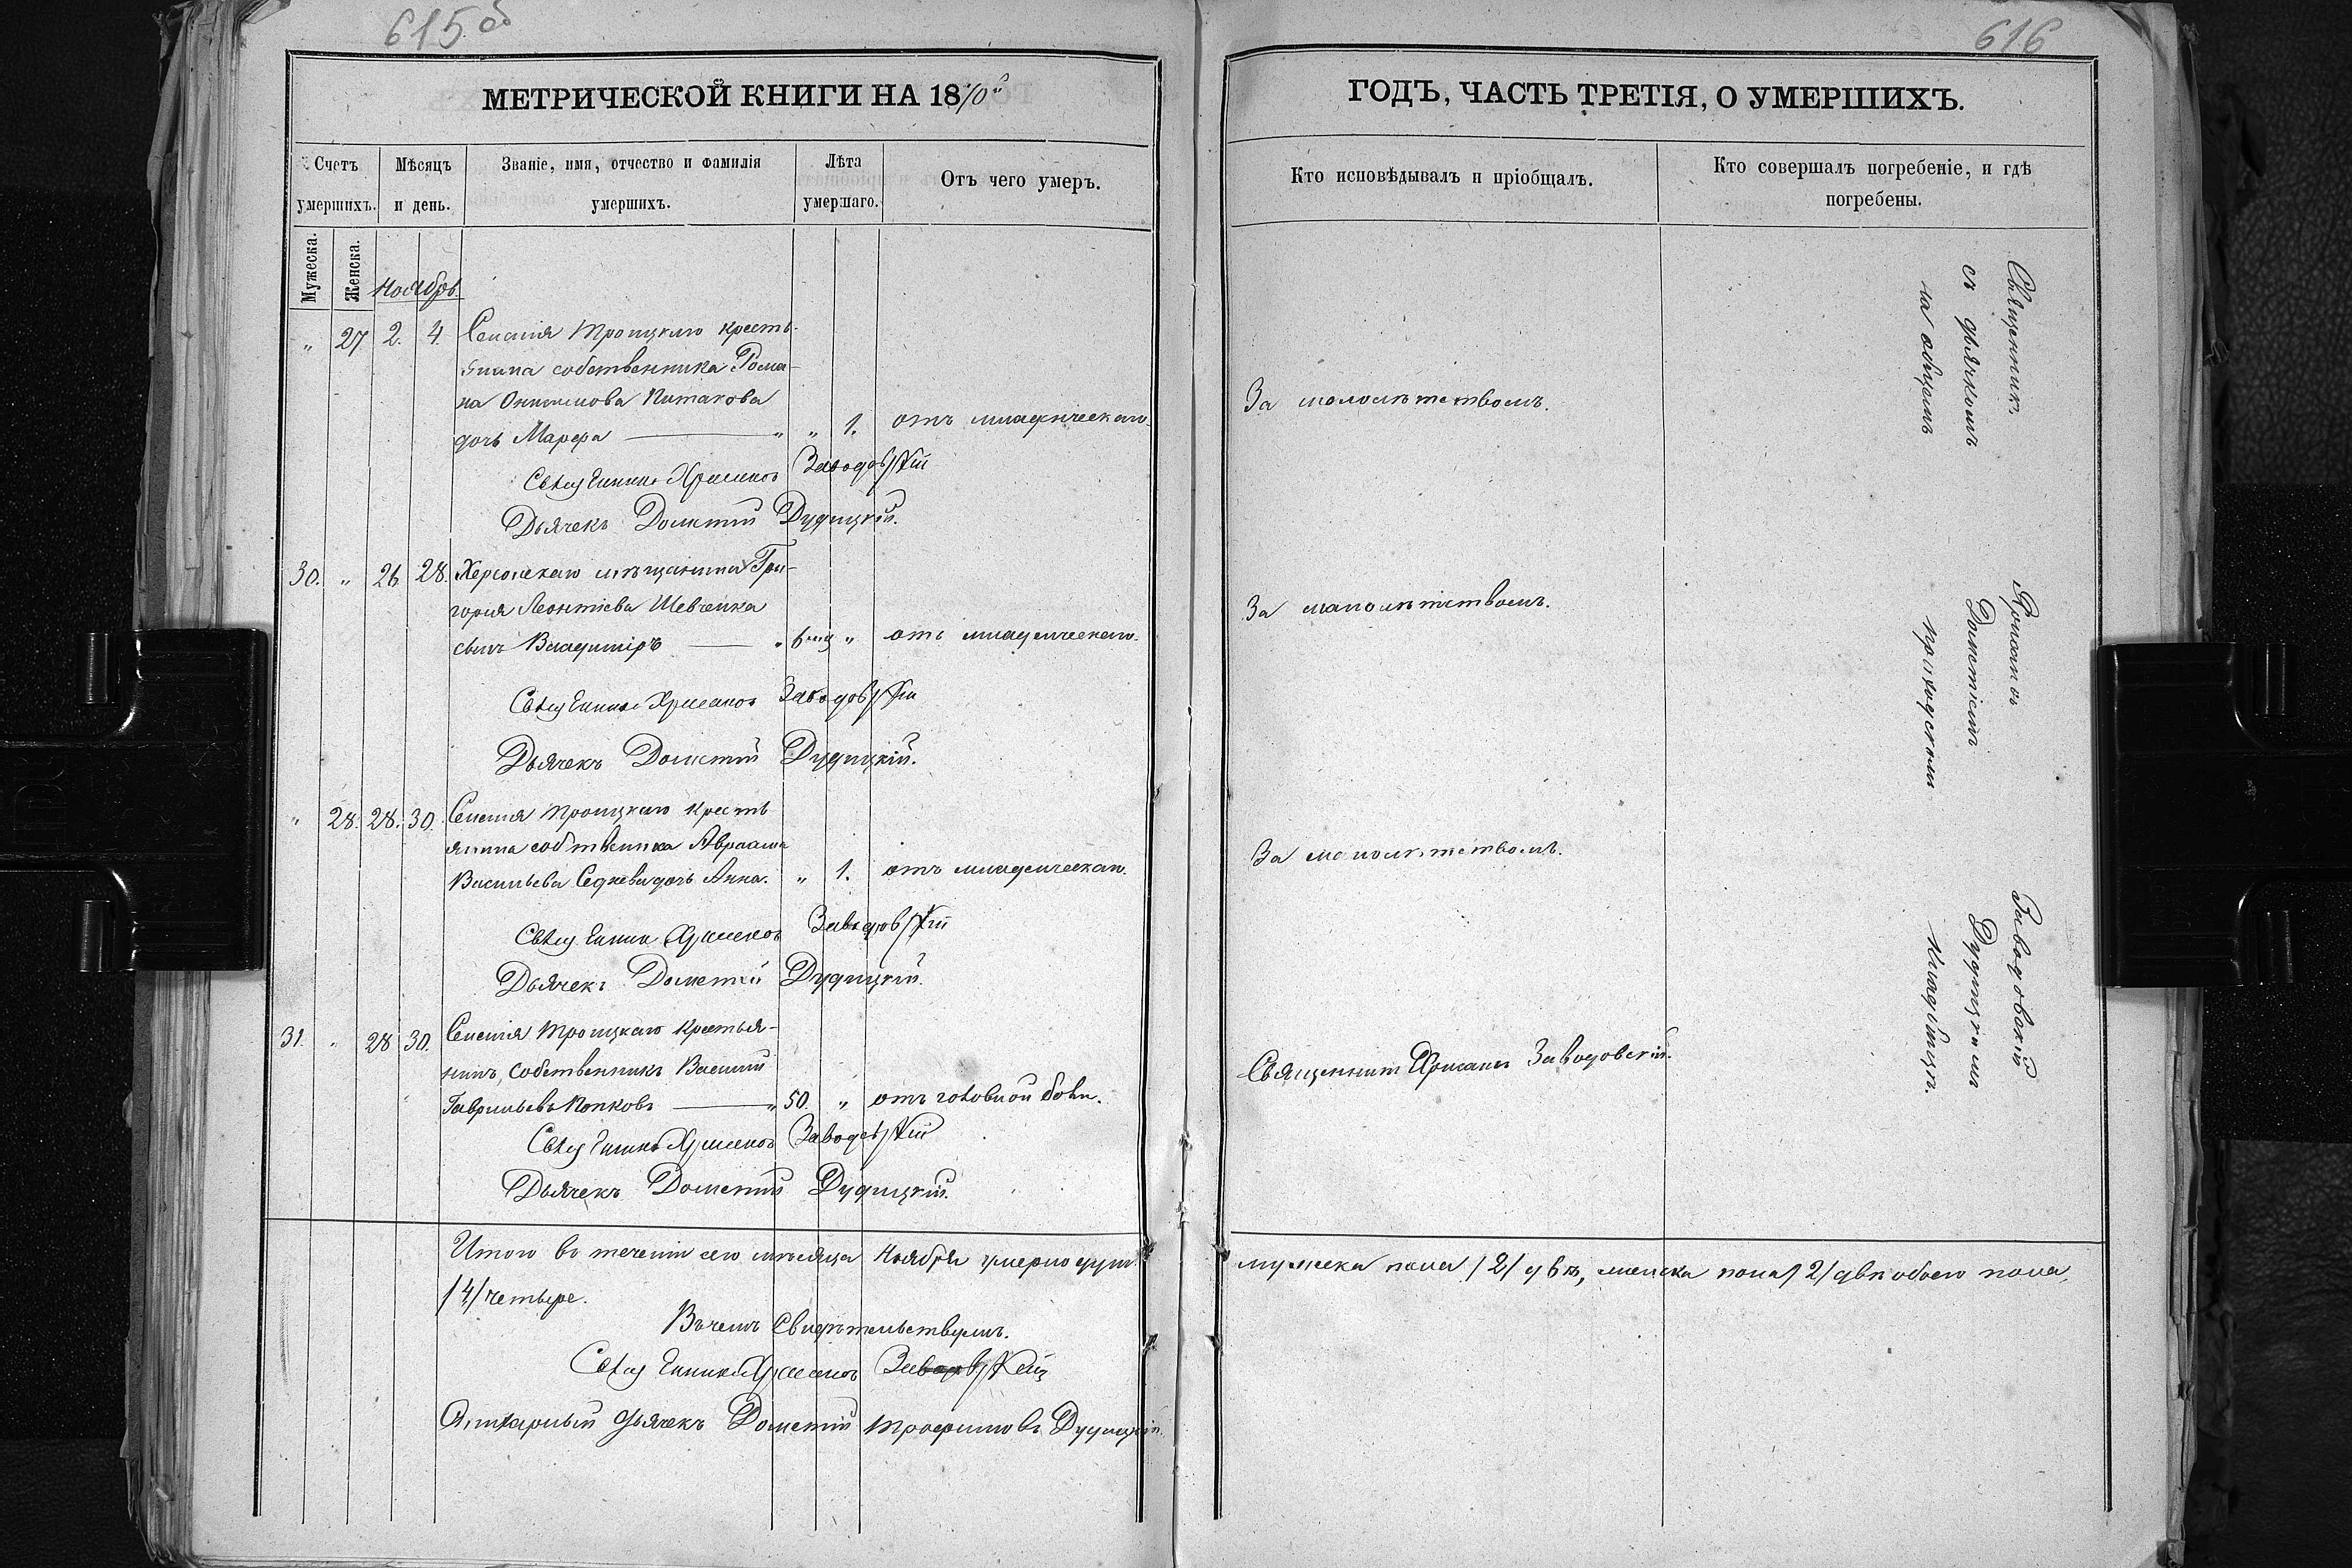 615 об
МЕТРИЧЕСКОЙ КНИГИ НА 1870й
Счетъ умершихъ.
Мѣсяцъ и день.
Званіе, имя, отчество и фамилія умершихъ.
Лѣта умершаго.
Отъ чего умеръ.
Мужеска.
Женска.
Ноябрь.
" 27 2. 4. Селенія Троицкаго кресть-
янина собственника Рома-
на Онисимова
дочь Марфа " " 1. отъ младенческаго.
Священникъ Хрисанѳъ Заводовскій
Дьячекъ Дометій Дудицкій.
30. " 26 28. Херсонскаго мѣщанина Гри-
горія Леонтіева Шевченка
сынъ Владиміръ " 6 мц " отъ младенческаго.
Священникъ Хрисанѳъ Заводовскій
Дьячекъ Дометій Дудицкій.
" 28. 28. 30. Селенія Троицкаго кресть
янина собственника Авраама
Васильева дочь Анна. " 1. отъ младенческаго.
Священникъ Хрисанѳъ Заводовскій
Дьячекъ Дометій Дудицкій.
31. " 28 30. Селенія Троицкаго крестья-
нинъ, собственникъ Василій
Гавріиловъ Попковъ " 50. " отъ головной боли.
Священникъ Хрисанѳъ Заводовскій
Дьячекъ Дометій Дудицкій.
Итого въ теченіи сего мѣсяца Ноября умерло душъ
/4/ четыре.
Въ чемъ свидѣтельствуемъ.
Священникъ Хрисанѳъ Заводовскій
дьячекъ Дометій Трофимовъ Дудицкій.
616
ГОДЪ, ЧАСТЬ ТРЕТІЯ, О УМЕРШИХЪ.
Кто исповѣдывалъ и пріобщалъ.
Кто совершалъ погребеніе, и гдѣ
погребены.
За малолѣтствомъ.
За малолѣтствомъ.
За малолѣтствомъ.
Священникъ Хрисанѳъ Заводовскій.
Священникъ Хрисанѳъ Заводовскій
съ дьячкомъ Дометіемъ Дудицкимъ
на общемъ приходскомъ кладбищѣ.
мужеска пола /2/ двѣ, женска пола /2/ двѣ обоего пола,